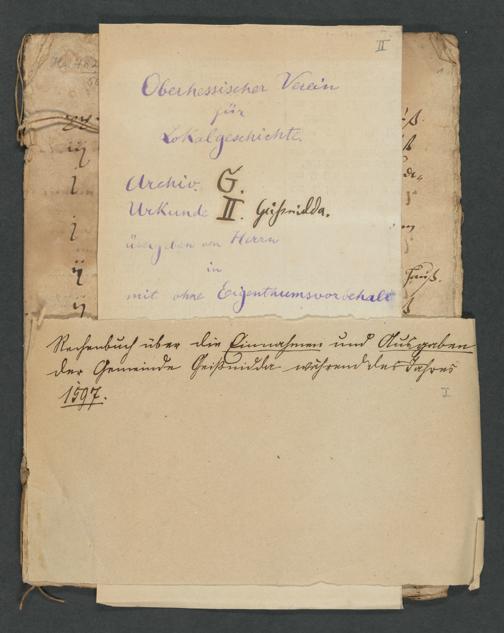 II
Oberhessischer Verein
für
Lokalgeschichte.
Archiv. G.
Urkunde II. Geißnidda.
übergeben von Herrn
in
mit ohne Eigenthumsvorbehalt
Rechenbuch über die Einnahmen und Ausgaben
der Gemeinde Geißnidda während des Jahres
1597.
I